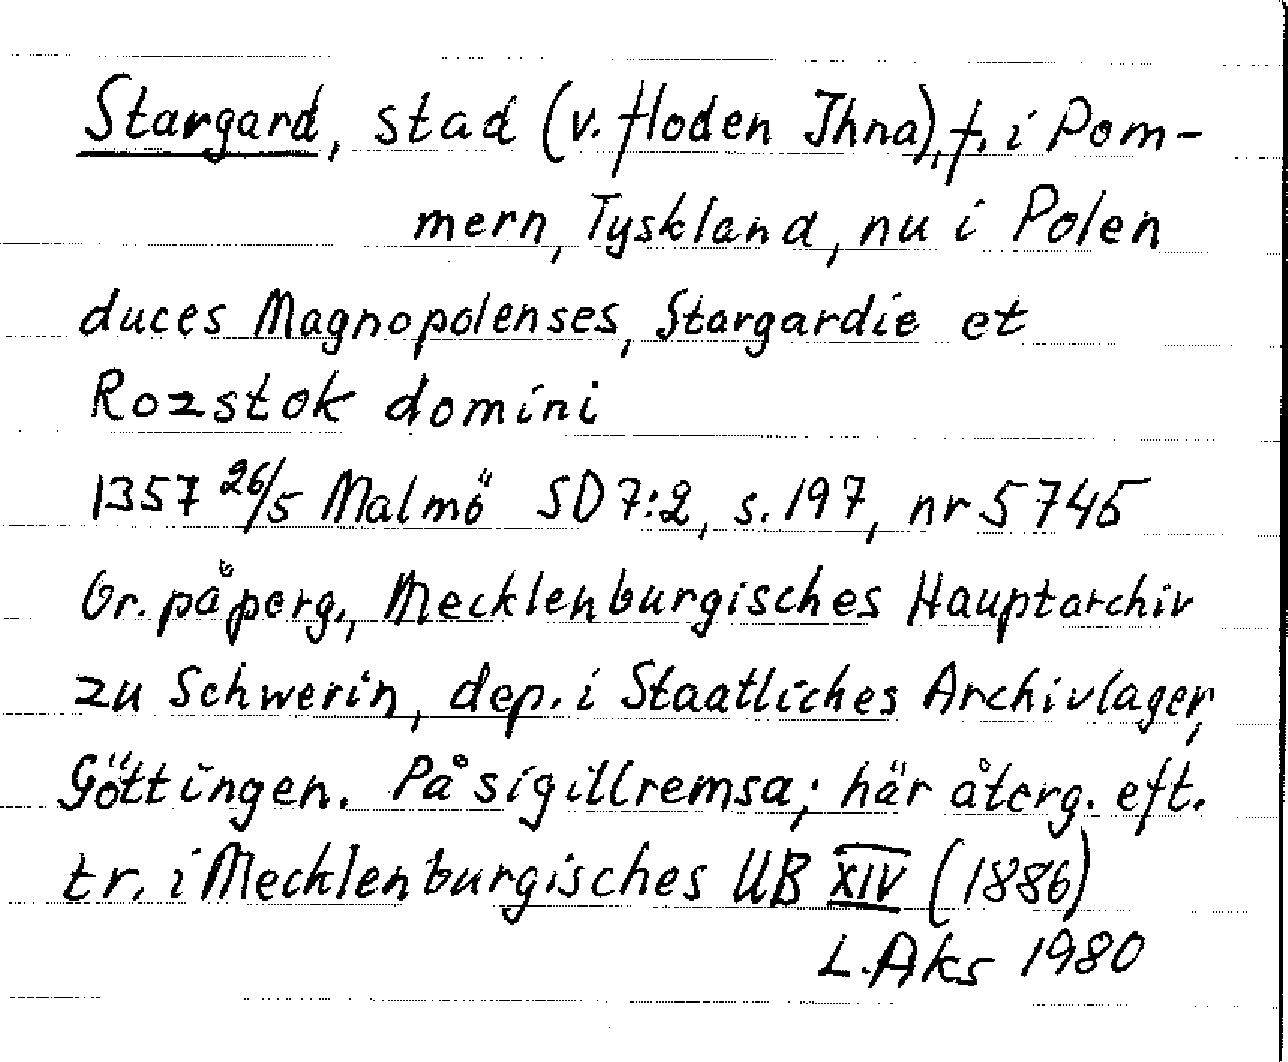 Stargard, stad (v. floden Ihna), f. i Pom-
mern, Tyskland, nu i Polen
duces Magnopolenses, Stargardie et
Rozstok domini
1357 26/5 Malmö SD 7:2, s. 197, nr 5745
Or. på perg., Mecklenburgisches Hauptarchiv
zu Schwerin, dep. i Staatliches Archivlager,
Göttingen. På sigillremsa; här återg. eft.
tr. i Mecklenburgisches UB XIV (1886)
L. Aks 1980